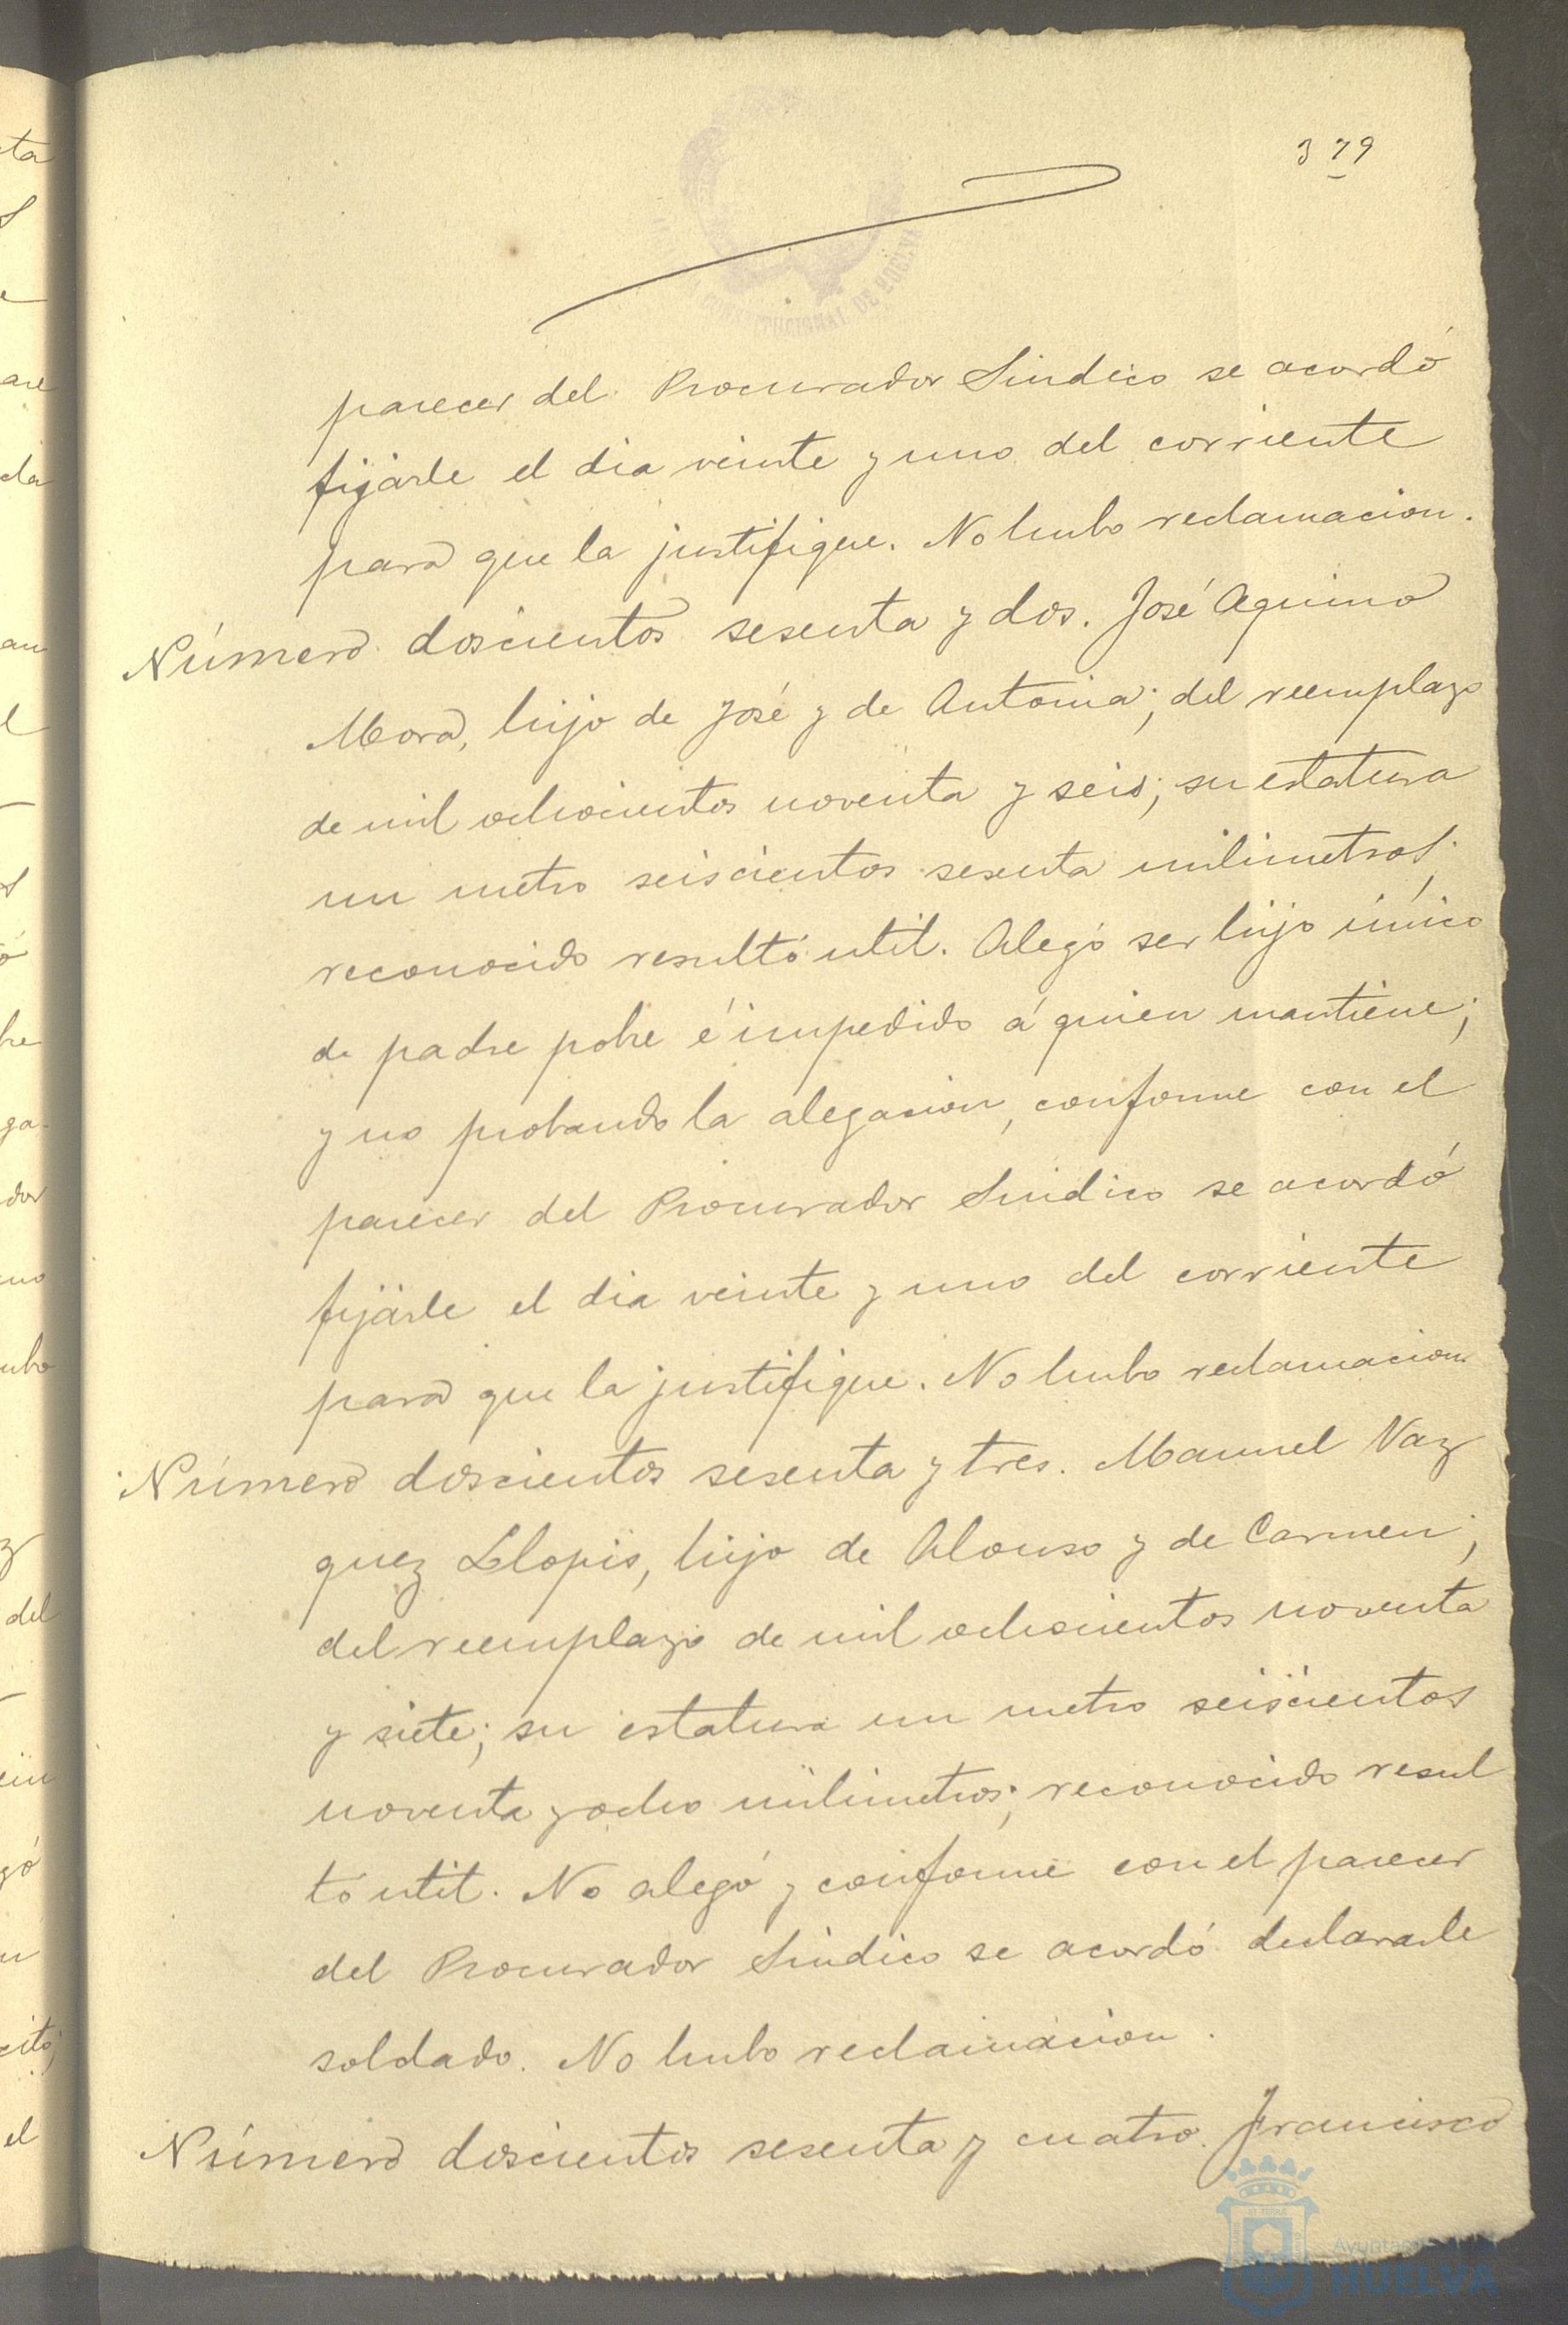 379
parecer del Procurador Sindico se acordó
fijarle el dia veinte y uno del corriente
para que la justifique. No hubo reclamacion.
Número doscientos sesenta y dos. José Aquino
Mora, hijo de José y de Antonia; del reemplazo
de mil ochocientos noventa y seis; su estatura
un metro seiscientos sesenta milimetros;
reconocido resultó util. Alegó ser hijo único
de padre pobre é impedido á quien mantiene;
y no probando la alegacion, conforme con el
parecer del Procurador Sindico se acordó
fijarle el dia veinte y uno del corriente
para que la justifique. No hubo reclamacion
Número doscientos sesenta y tres. Manuel Vaz
quez Llopis, hijo de Alonso y de Carmen;
del reemplazo de mil ochocientos noventa
y siete; su estatura un metro seiscientos
noventa y ocho milimetros; reconocido resul
tó util. No alegó y conforme con el parecer
del Procurador Sindico se acordó declararle
soldado. No hubo reclamacion.
Número doscientos sesenta y cuatro. Francisco
HUELVA